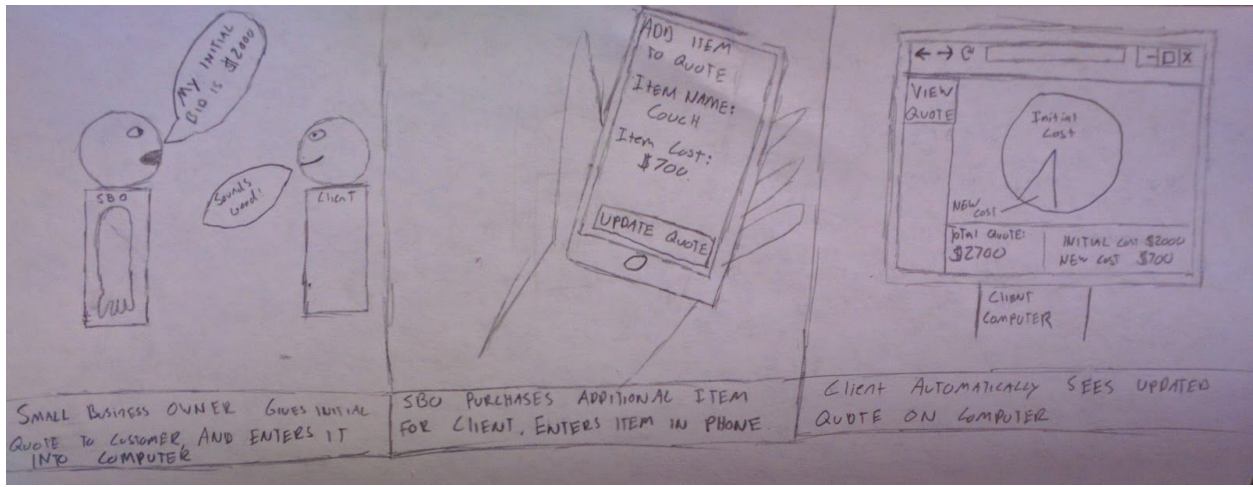 MY INITIAL
BID IS $2000
SBO
Sounds
Good!
Client
SMALL BUSINESS OWNER GIVES INITIAL
QUOTE TO CUSTOMER, AND ENTERS IT
INTO COMPUTER
ADD ITEM
TO QUOTE
ITEM NAME:
COUCH
Item Cost:
$700.
UPDATE QUOTE
SBO PURCHASES ADDITIONAL ITEM
FOR CLIENT, ENTERS ITEM IN PHONE
VIEW
QUOTE
Initial
Cost
NEW
Cost
TOTAL QUOTE:
$2700
INITIAL COST $2000
NEW COST $700
CLIENT
COMPUTER
Client AUTOMATICALLY SEES UPDATED
QUOTE ON COMPUTER